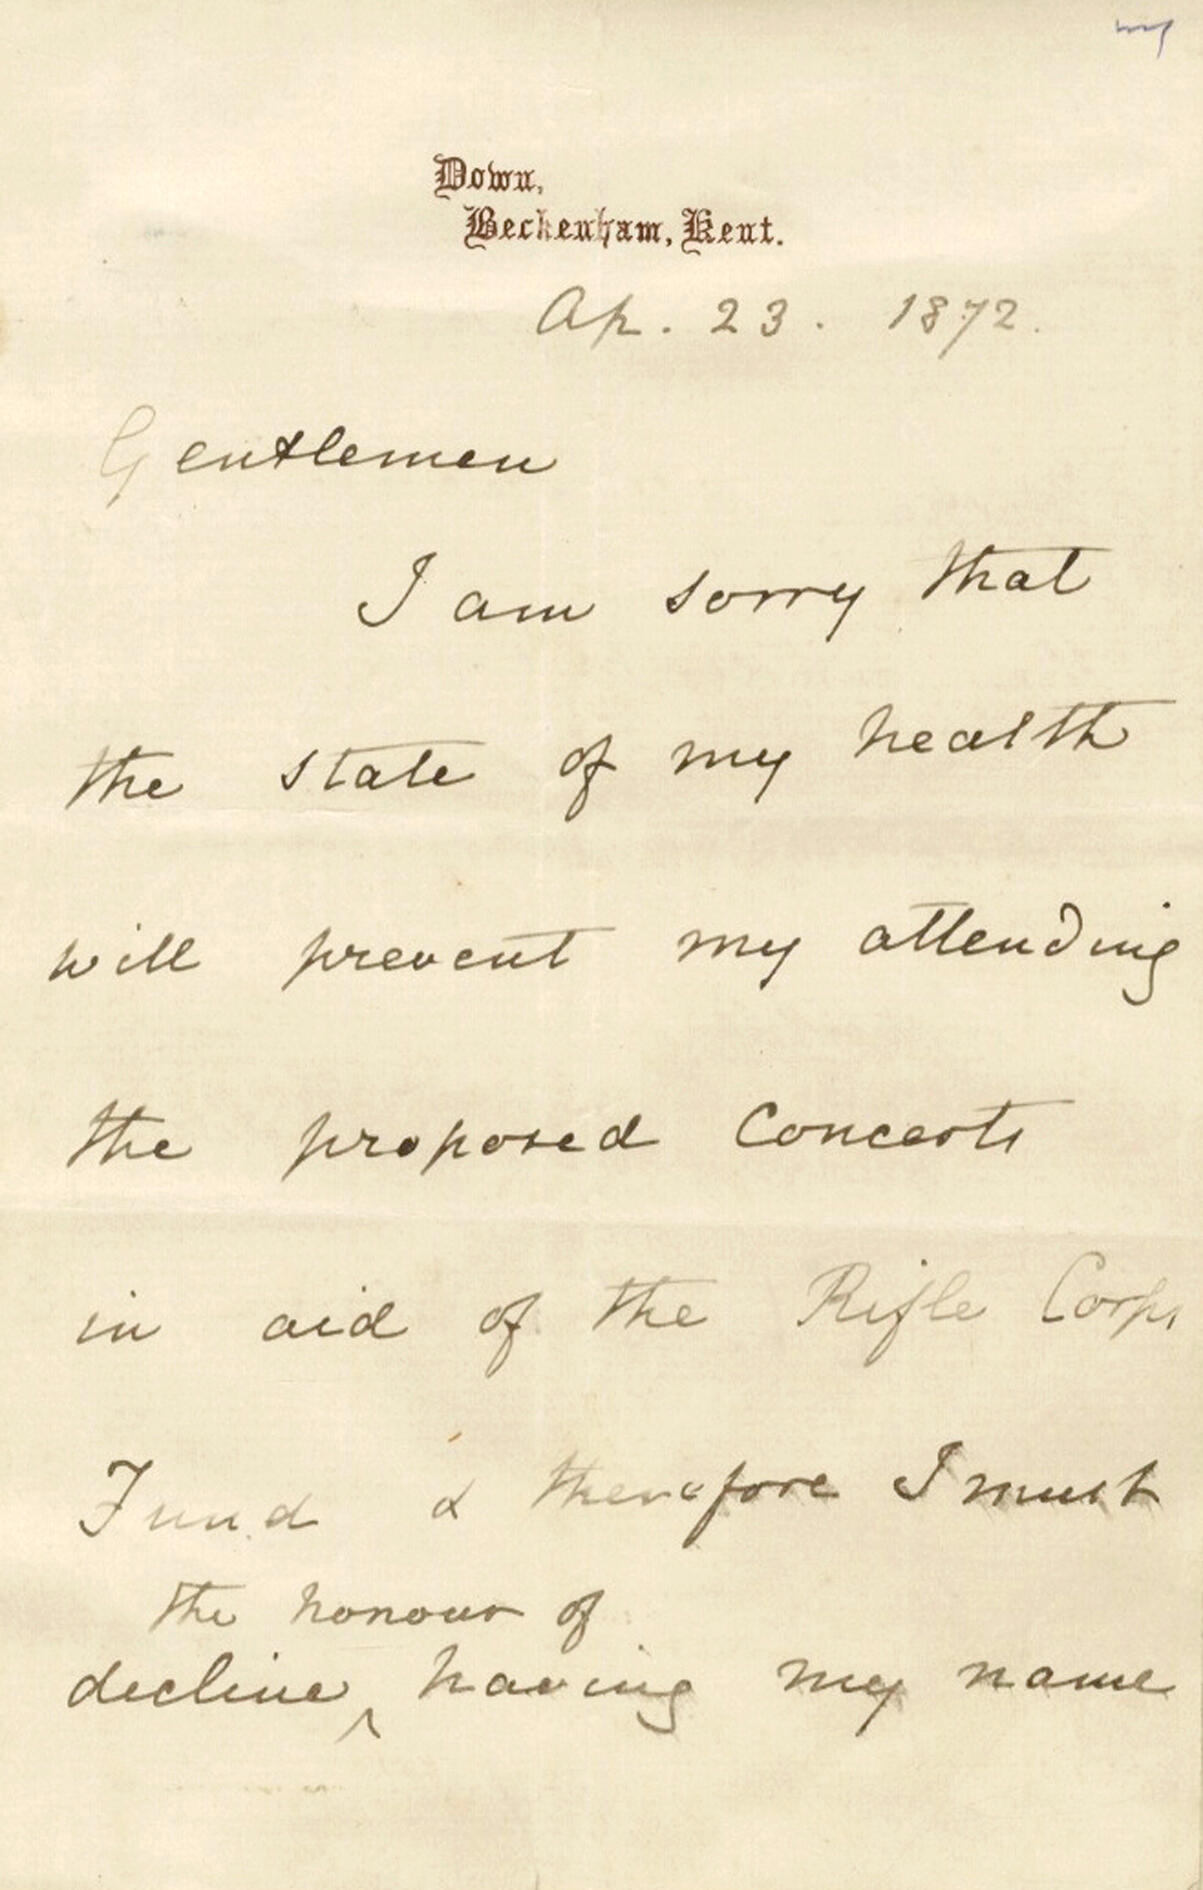 Down,
Beckenham, Kent.
Ap. 23. 1872.
Gentlemen
I am sorry that
the state of my health
will prevent my attending
the proposed Concerts
in aid of the Rifle Corps
Fund & therefore I must
the honour of
decline ^ having my name